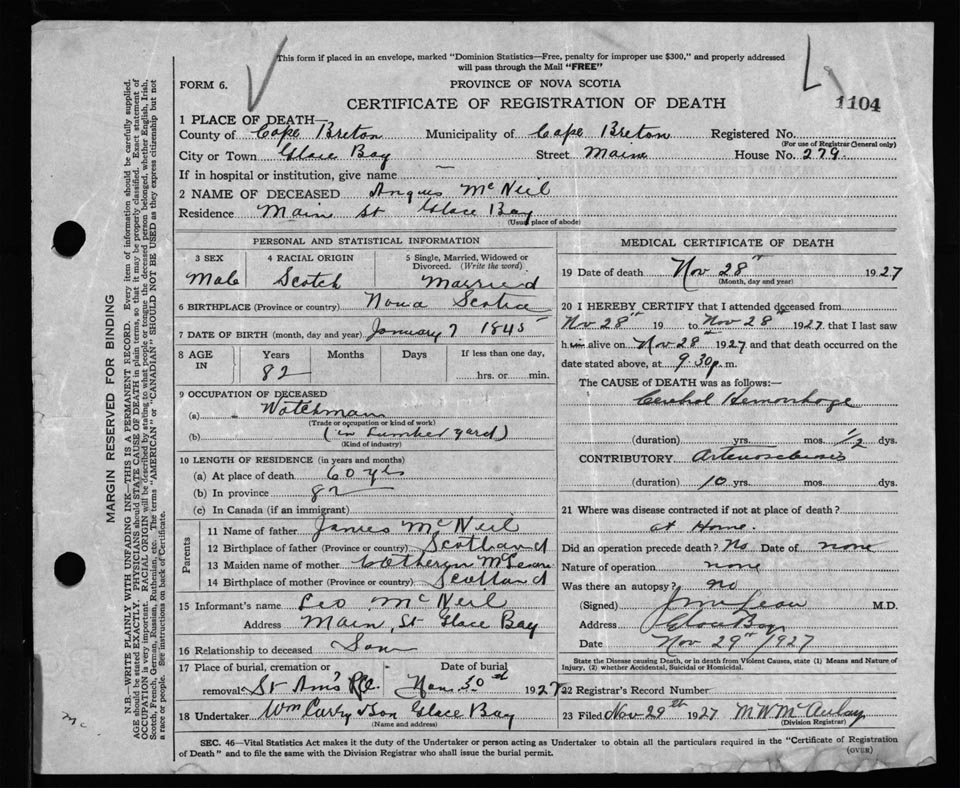 This form if placed in an envelope, marked "Dominion Statistics—Free, penalty for improper use $300," and properly addressed
will pass through the Mail "FREE"
FORM 6.
PROVINCE OF NOVA SCOTIA
CERTIFICATE OF REGISTRATION OF DEATH
1104
1 PLACE OF DEATH—
County of Cape Breton Municipality of Cape Breton Registered No.
(For use of Registrar General only)
City or Town Glace Bay Street Main House No. 279.
If in hospital or institution, give name —
2 NAME OF DECEASED Angus McNeil
Residence Main St Glace Bay
(Usual place of abode)
PERSONAL AND STATISTICAL INFORMATION
3 SEX 4 RACIAL ORIGIN 5 Single, Married, Widowed or Divorced. (Write the word)
Male Scotch Married
6 BIRTHPLACE (Province or country) Nova Scotia
7 DATE OF BIRTH (month, day and year) January 7 1845
8 AGE IN Years Months Days If less than one day,
82 hrs. or min.
9 OCCUPATION OF DECEASED
(a) Watchman
(Trade or occupation or kind of work)
(b) (in Lumber yard)
(Kind of industry)
10 LENGTH OF RESIDENCE (in years and months)
(a) At place of death 60 yrs
(b) In province 82
(c) In Canada (if an immigrant)
Parents
11 Name of father James McNeil
12 Birthplace of father (Province or country) Scotland
13 Maiden name of mother
14 Birthplace of mother (Province or country) Scotland
15 Informant's name Leo McNeil
Address Main St Glace Bay
16 Relationship to deceased Son
17 Place of burial, cremation or Date of burial
removal St Ann's Nov 30 1927
18 Undertaker Wm Curry & Son Glace Bay
(Name and address)
MEDICAL CERTIFICATE OF DEATH
19 Date of death Nov 28th 1927
(Month, day and year)
20 I HEREBY CERTIFY that I attended deceased from
Nov 28th 19 to Nov 28th 1927 that I last saw
him alive on Nov 28th 1927 and that death occurred on the
date stated above, at 9.30 p. m.
The CAUSE OF DEATH was as follows:—
Cerebral Hemorrhage
(duration) yrs. mos. 1/2 dys.
CONTRIBUTORY Arteriosclerosis
(duration) 10 yrs. mos. dys.
21 Where was disease contracted if not at place of death?
at Home.
Did an operation precede death? No Date of none
Nature of operation none
Was there an autopsy? no
(Signed) M.D.
Address Glace Bay
Date Nov 29th 1927
State the Disease causing Death, or in death from Violent Causes, state (1) Means and Nature of
Injury, (2) whether Accidental, Suicidal or Homicidal.
22 Registrar's Record Number
23 Filed Nov 29th 1927 M W McAulay
(Division Registrar)
SEC. 46—Vital Statistics Act makes it the duty of the Undertaker or person acting as Undertaker to obtain all the particulars required in the "Certificate of Registration
of Death" and to file the same with the Division Registrar who shall issue the burial permit.
(OVER)
MARGIN RESERVED FOR BINDING
N.B.—WRITE PLAINLY WITH UNFADING INK—THIS IS A PERMANENT RECORD. Every item of information should be carefully supplied.
AGE should be stated EXACTLY. PHYSICIANS should STATE CAUSE OF DEATH in plain terms, so that it may be properly classified. Exact statement of
OCCUPATION is very important. RACIAL ORIGIN will be described by stating to what people or tongue the deceased person belonged, whether English, Irish,
Scotch, French, German, Russian, Ruthenian, etc. The terms "AMERICAN" or "CANADIAN" SHOULD NOT BE USED as they express citizenship but not
a race or people. See instructions on back of Certificate.
Mc